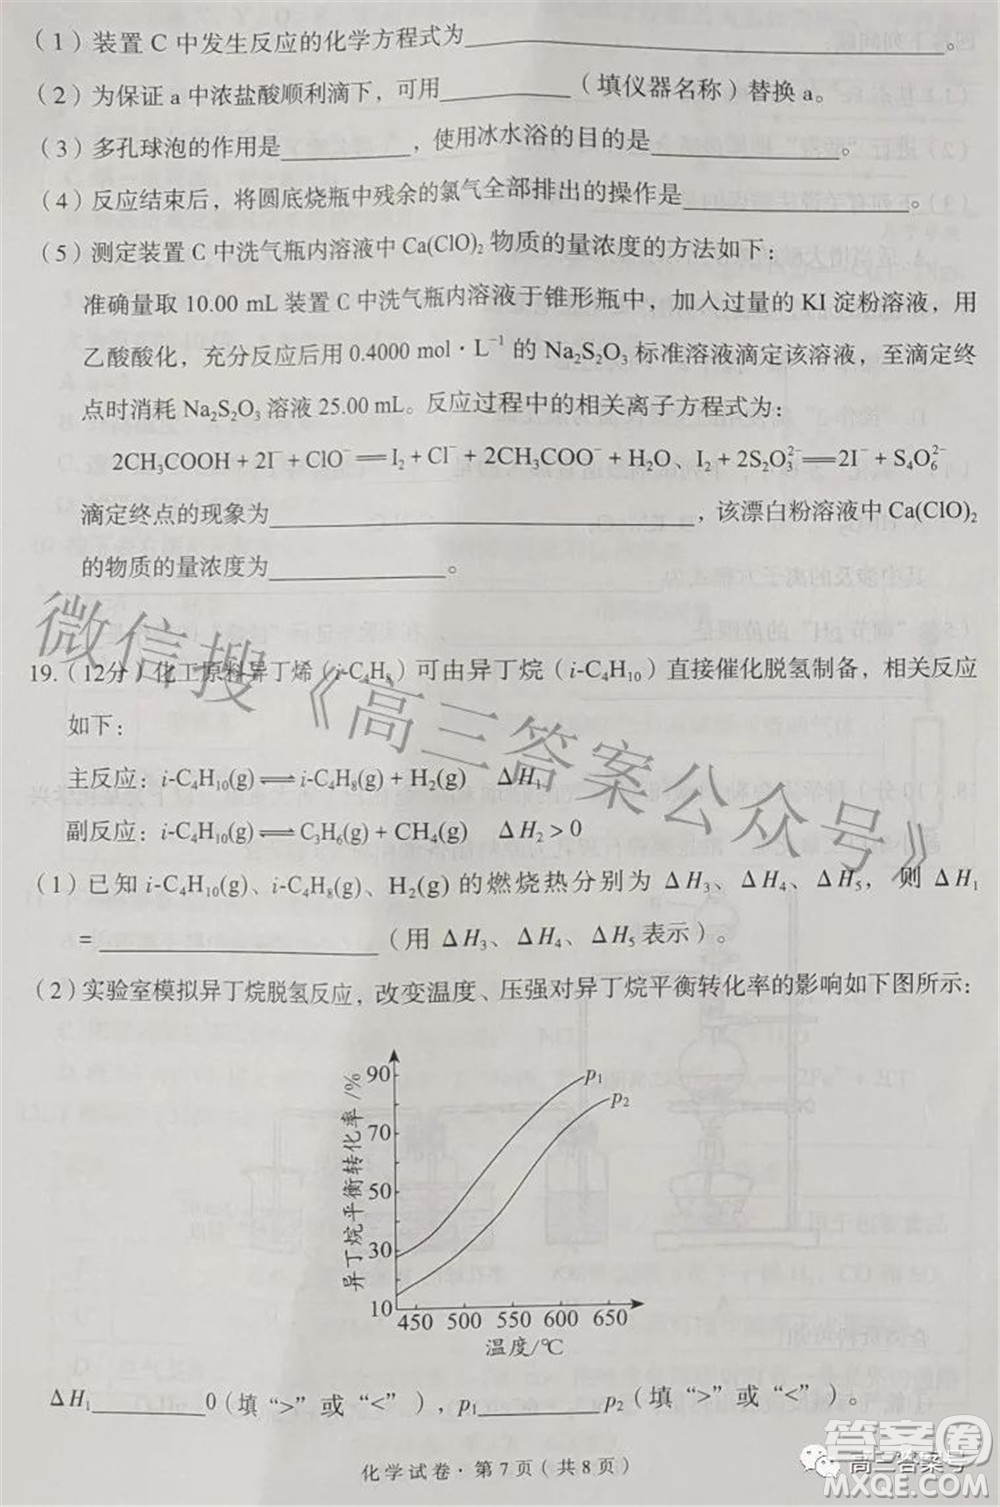 （1）装置 C 中发生反应的化学方程式为____________________。
（2）为保证 a 中浓盐酸顺利滴下，可用__________（填仪器名称）替换 a。
（3）多孔球泡的作用是__________，使用冰水浴的目的是__________。
（4）反应结束后，将圆底烧瓶中残余的氯气全部排出的操作是__________。
（5）测定装置 C 中洗气瓶内溶液中 Ca(ClO)₂ 物质的量浓度的方法如下：
准确量取 10.00 mL 装置 C 中洗气瓶内溶液于锥形瓶中，加入过量的 KI 淀粉溶液，用
乙酸酸化，充分反应后用 0.4000 mol·L⁻¹ 的 Na₂S₂O₃ 标准溶液滴定该溶液，至滴定终
点时消耗 Na₂S₂O₃ 溶液 25.00 mL。反应过程中的相关离子方程式为：
2CH₃COOH + 2I⁻ + ClO⁻ ══ I₂ + Cl⁻ + 2CH₃COO⁻ + H₂O、I₂ + 2S₂O₃²⁻ ══ 2I⁻ + S₄O₆²⁻
滴定终点的现象为____________________，该漂白粉溶液中 Ca(ClO)₂
的物质的量浓度为__________。
19.（12分）化工原料异丁烯（i-C₄H₈）可由异丁烷（i-C₄H₁₀）直接催化脱氢制备，相关反应
如下：
主反应：i-C₄H₁₀(g) ⇌ i-C₄H₈(g) + H₂(g) ΔH₁
副反应：i-C₄H₁₀(g) ⇌ C₃H₆(g) + CH₄(g) ΔH₂ > 0
（1）已知 i-C₄H₁₀(g)、i-C₄H₈(g)、H₂(g) 的燃烧热分别为 ΔH₃、ΔH₄、ΔH₅，则 ΔH₁
=____________________（用 ΔH₃、ΔH₄、ΔH₅ 表示）。
（2）实验室模拟异丁烷脱氢反应，改变温度、压强对异丁烷平衡转化率的影响如下图所示：
异丁烷平衡转化率/%
90
70
50
30
10
p₁
p₂
450 500 550 600 650
温度/℃
ΔH₁__________0（填“>”或“<”），p₁__________p₂（填“>”或“<”）。
化学试卷·第 7 页（共 8 页）
微信搜《高三答案公众号》
高三答案号
答案圈
MXQE.COM